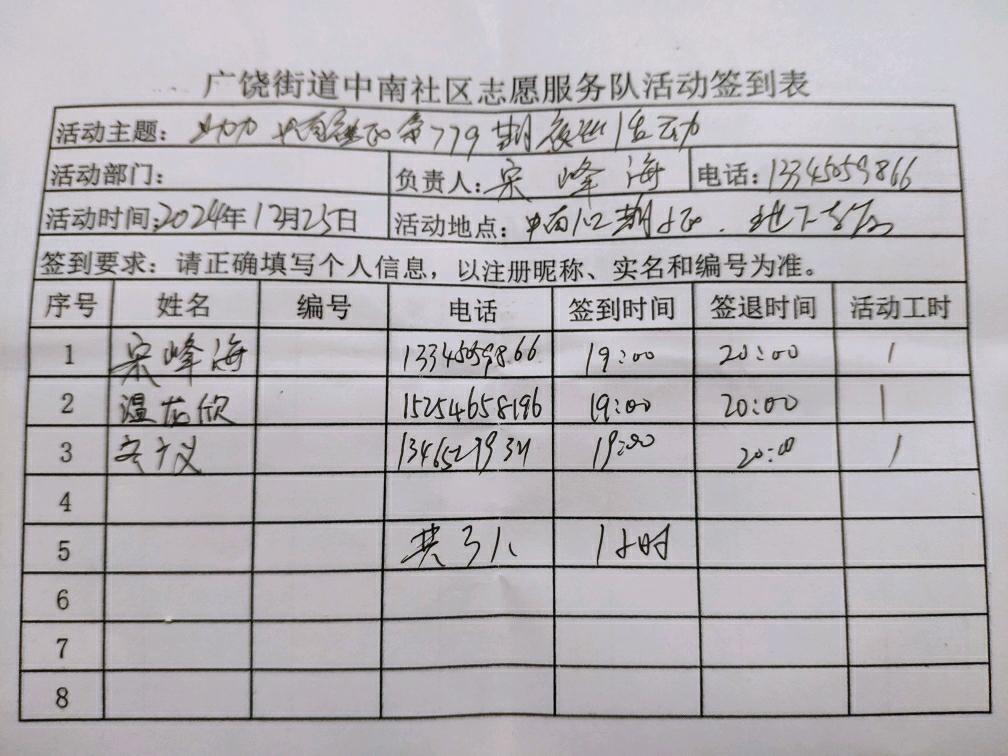 广饶街道中南社区志愿服务队活动签到表
活动主题： 助力 第779期 活动
活动部门： 负责人：宋峰海 电话：13345059866
活动时间：2024年12月25日 活动地点：中南 期 地下
签到要求：请正确填写个人信息，以注册昵称、实名和编号为准。
序号 姓名 编号 电话 签到时间 签退时间 活动工时
1 宋峰海 13345059866 19:00 20:00 1
2 温 欣 15254658196 19:00 20:00 1
3 19:00 20:00 1
4
5 共3人 1小时
6
7
8